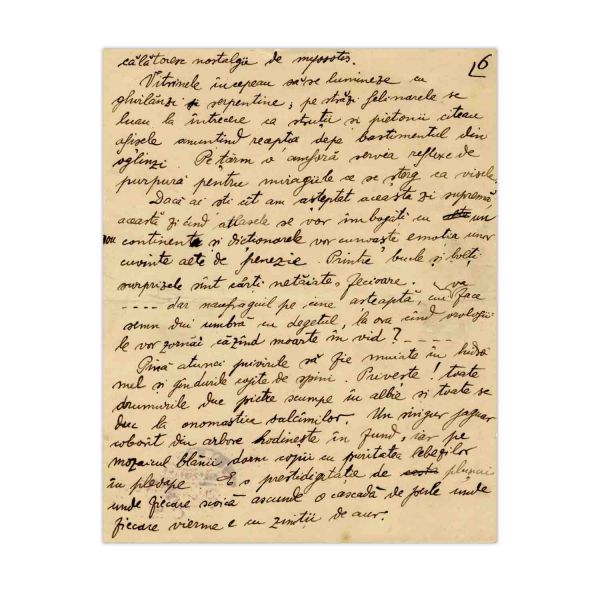 6
călătoresc nostalgie de myosotis.
Vitrinele începeau să se lumineze cu
ghirlănzi și serpentine; pe străzi felinarele se
luau la întrecere ca struții și pietonii citeau
afișele amuntind recepția depe bastimentul din
oglinzi. Pe țărm o amforă servea reflexe de
purpură pentru miragiile ce se șterg ca visele.
Dacă ai ști cît am așteptat aceasta zi supremă
această zi cînd atlasele se vor îmbogăți cu un
nou continent și dicționarele vor cunoaște emoția unor
cuvinte de Printre bucle și bolți
surprizele sînt cărți netăiate, fecioare.
---- dar naufragiul pe cine așteaptă, cui va face
semn din umbră cu degetul, la ora cînd orologii-
le vor zornăi căzînd moarte în vid? ----
Pînă atunci privirile să fie muiate în hidro
mel și gîndurile de spini. Privește! toate
drumurile duc pietre scumpe în albie și toate se
duc la onomastica salcîmilor. Un singur jaguar
coborît din arbore hodinește în fund, iar pe
mozaicul blănii dorm copii cu puritatea lebezilor
în E o prestidigitație de
unde fiecare ascunde o cascadă de perle unde
fiecare vierme e cu zimții de aur.